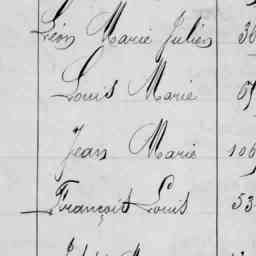 Léon Marie Julien 36
Louis Marie
Jean Marie 106
François Louis 53